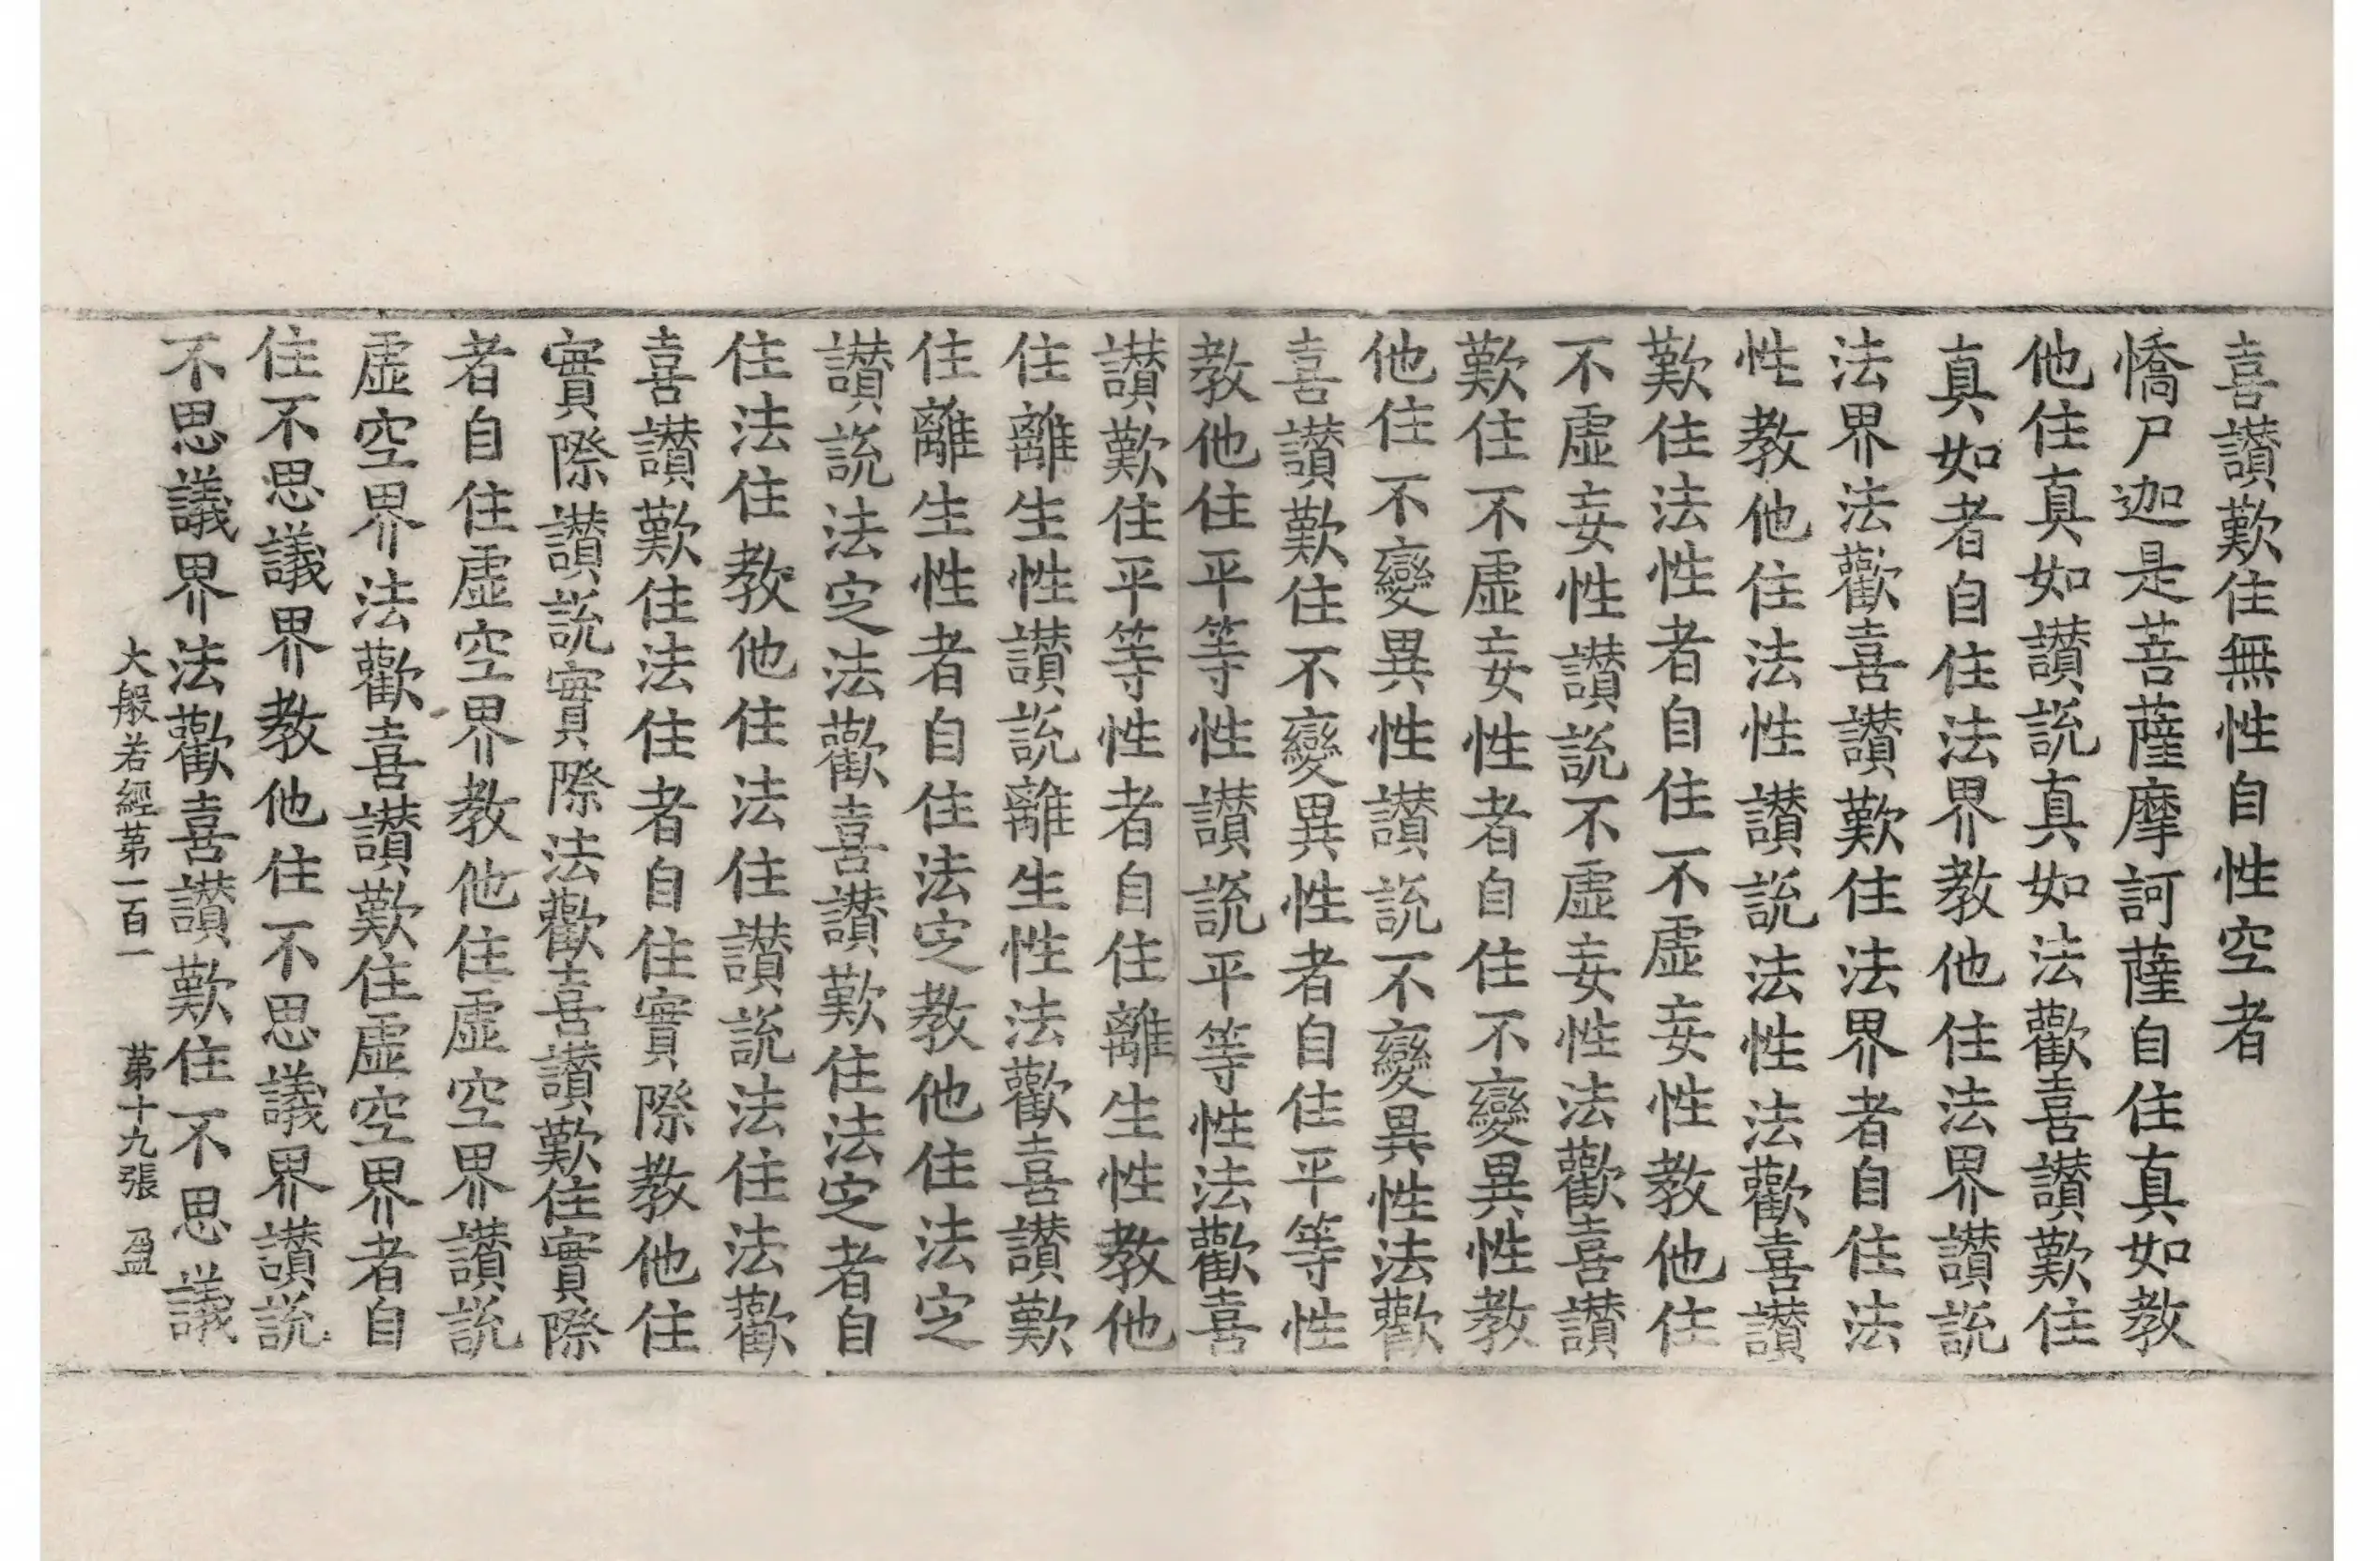 喜讃歎住無性自性空者
憍尸迦是菩薩摩訶薩自住真如教
他住真如讃說真如法歡喜讃歎住
真如者自住法界教他住法界讃說
法界法歡喜讃歎住法界者自住法
性教他住法性讃說法性法歡喜讃
歎住法性者自住不虛妄性教他住
不虛妄性讃說不虛妄性法歡喜讃
歎住不虛妄性者自住不變異性教
他住不變異性讃說不變異性法歡
喜讃歎住不變異性者自住平等性
教他住平等性讃說平等性法歡喜
讃歎住平等性者自住離生性教他
住離生性讃說離生性法歡喜讃歎
住離生性者自住法定教他住法定
讃說法定法歡喜讃歎住法定者自
住法住教他住法住讃說法住法歡
喜讃歎住法住者自住實際教他住
實際讃說實際法歡喜讃歎住實際
者自住虛空界教他住虛空界讃說
虛空界法歡喜讃歎住虛空界者自
住不思議界教他住不思議界讃說
不思議界法歡喜讃歎住不思議
大般若經第一百一 第十九張 盈